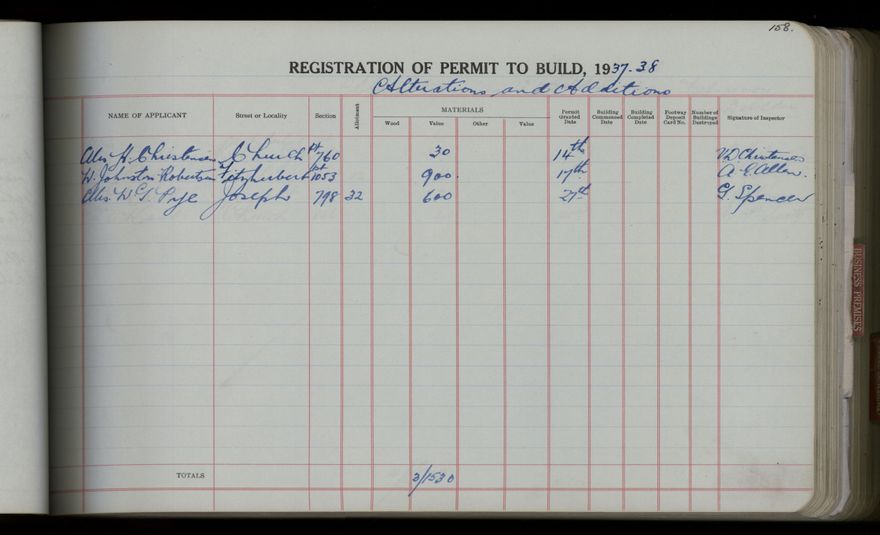 158.
REGISTRATION OF PERMIT TO BUILD, 1937-38
Alterations and Additions
NAME OF APPLICANT Street or Locality Section Allotment MATERIALS Wood Value Other Value Permit Granted Date Building Commenced Date Building Completed Date Footway Deposit Card No. Number of Buildings Destroyed Signature of Inspector
Mrs H. Christensen Church St 760 30 14th V.D Christensen
W. Johnston Robertson Fitzherbert St 1053 900. 17th A. E. Allen.
Mrs W G. Pye Joseph 798 32 600 27th G. Spencer
TOTALS 3/1530
BUSINESS PREMISES